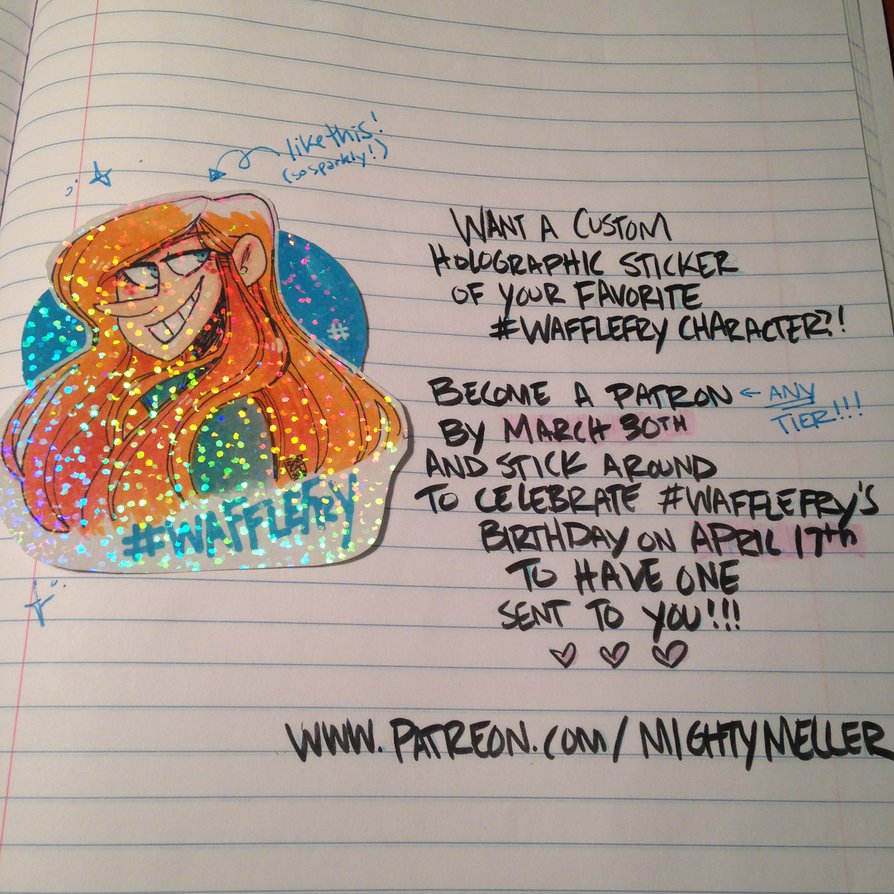 like this!
(so sparkly!)
WANT A CUSTOM
HOLOGRAPHIC STICKER
OF YOUR FAVORITE
#WAFFLEFRY CHARACTER?!
BECOME A PATRON ← ANY
TIER!!!
BY MARCH 30TH
AND STICK AROUND
TO CELEBRATE #WAFFLEFRY'S
BIRTHDAY ON APRIL 17th
TO HAVE ONE
SENT TO YOU!!!
#
#WAFFLEFRY
WWW.PATREON.COM/MIGHTYMELLER